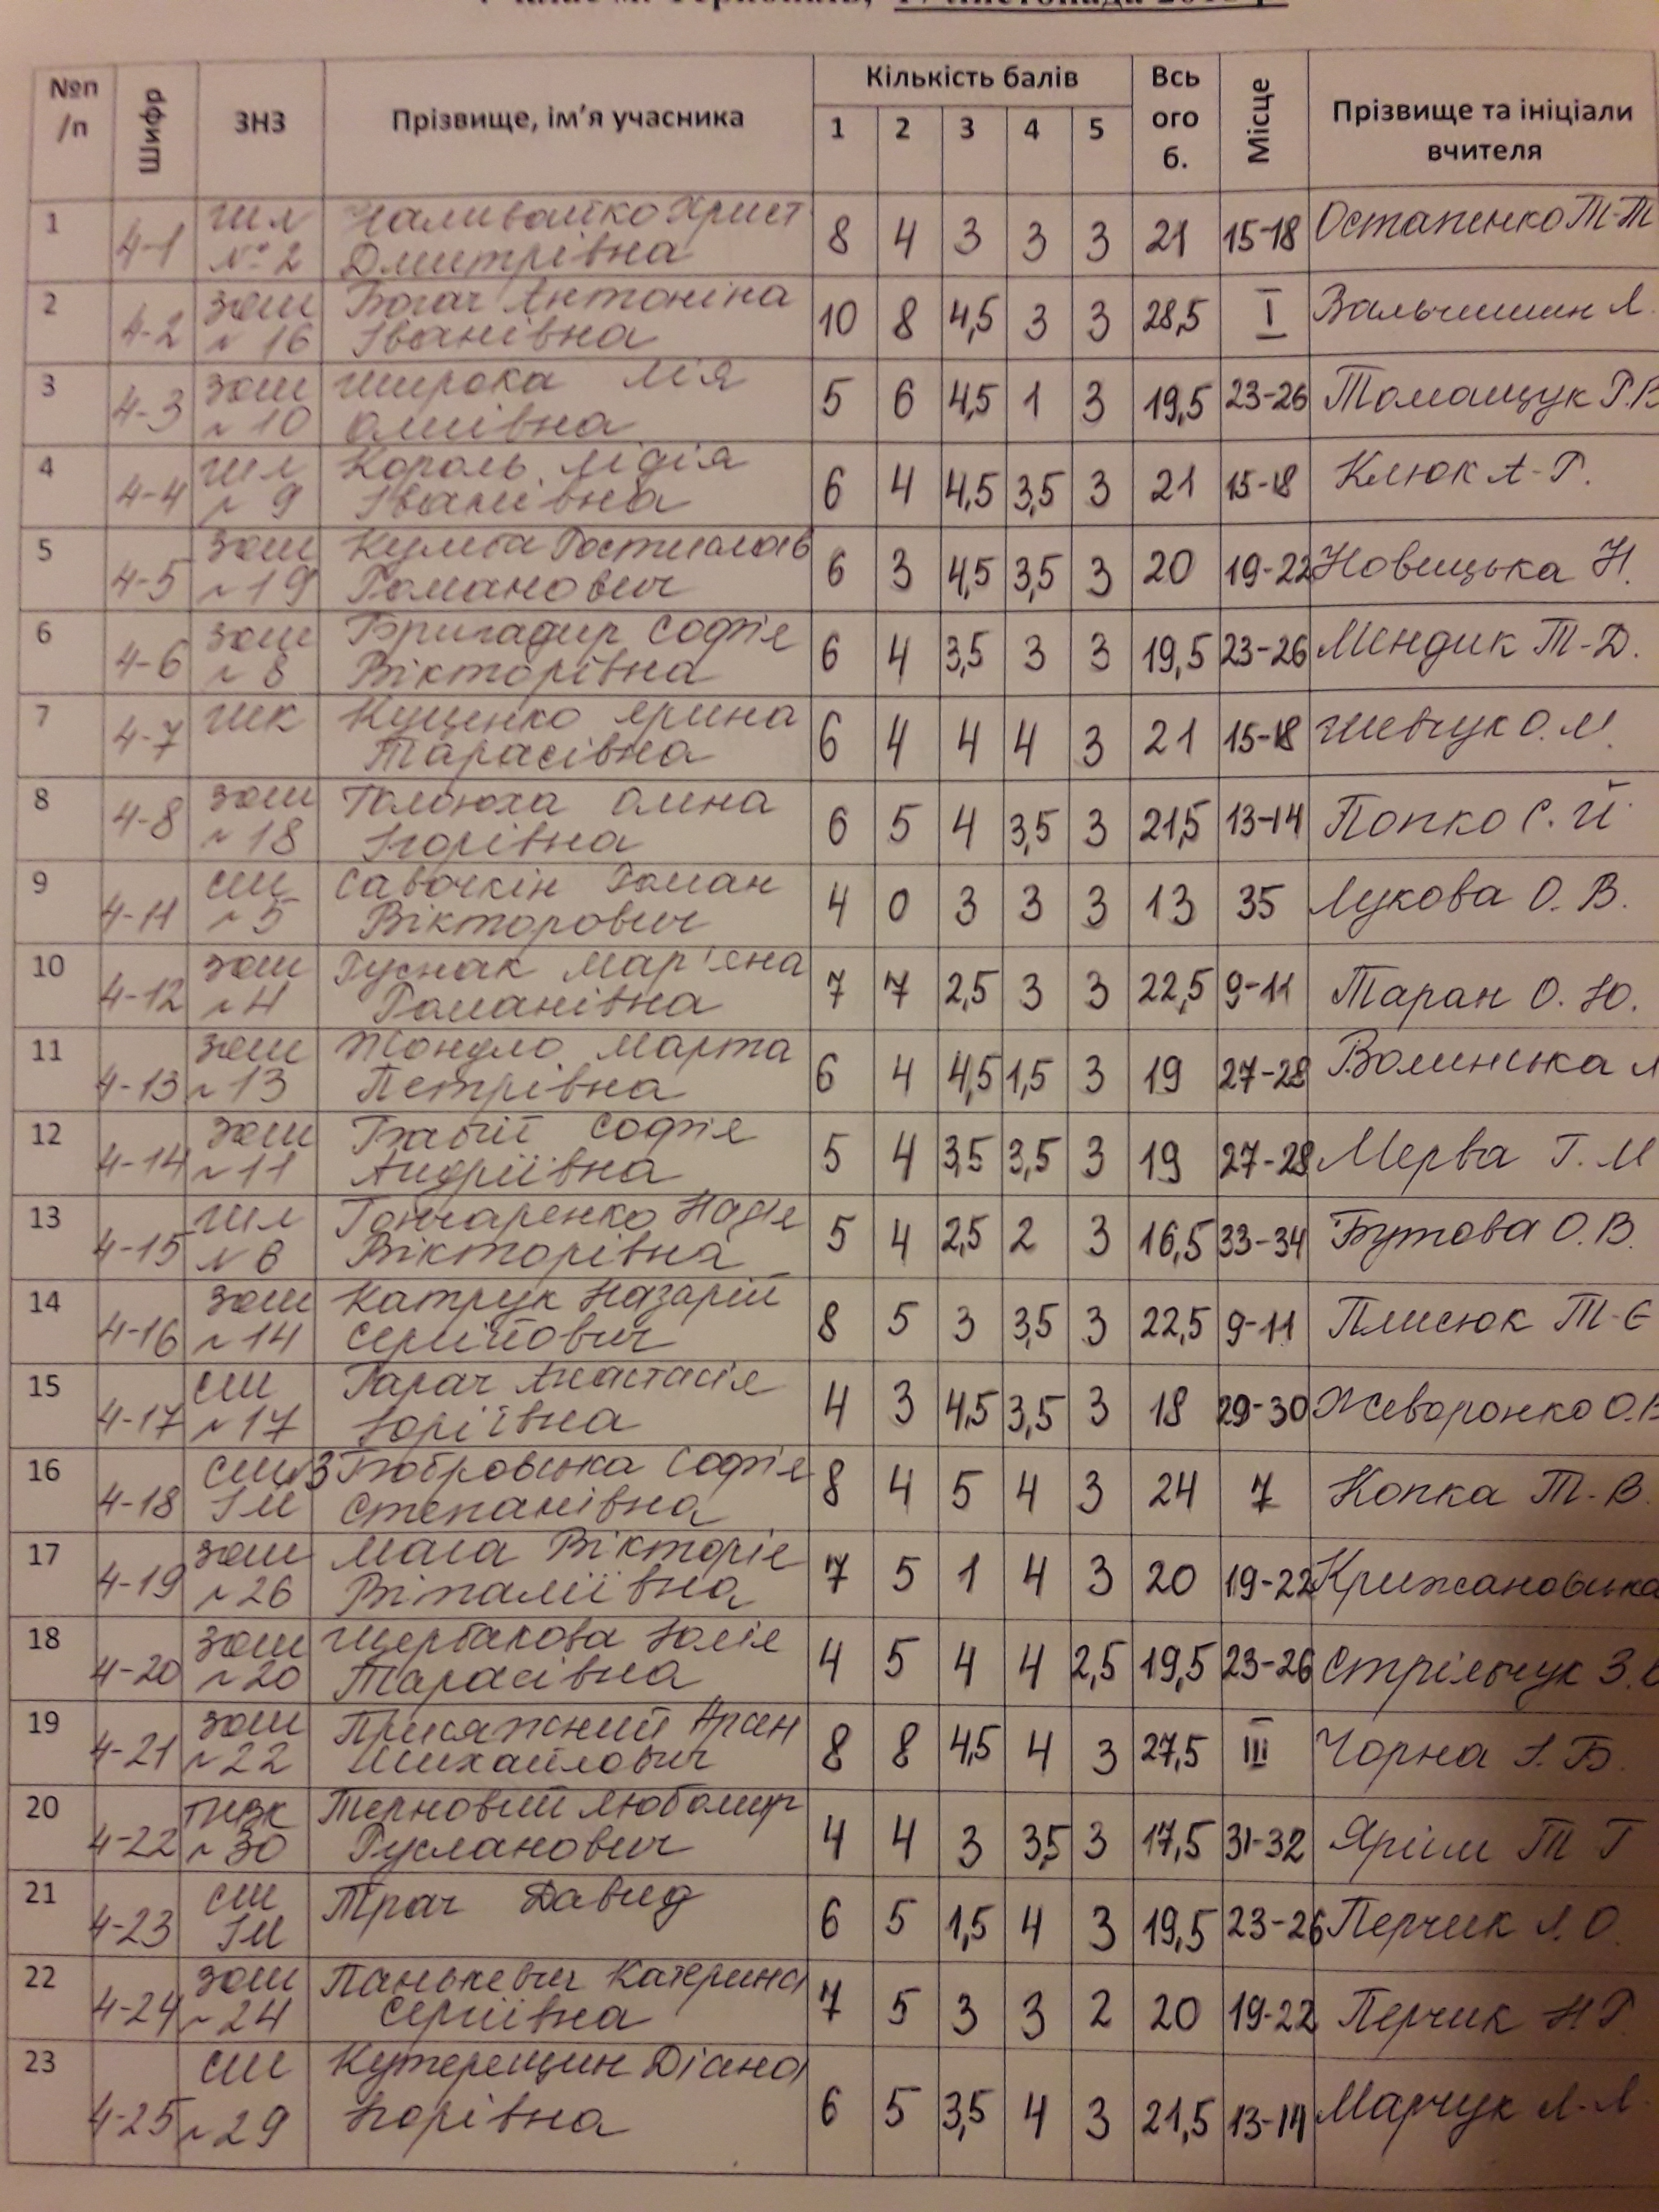 17 листопада
№п/п Шифр ЗНЗ Прізвище, ім’я учасника Кількість балів Всього б. Місце Прізвище та ініціали вчителя
1 2 3 4 5
1 4-1 № 2 Дмитрівна 8 4 3 3 3 21 15-18 Остапенко Т-Т
2 4-2 зош № 16 Богач Антоніна Іванівна 10 8 4,5 3 3 28,5 I Вальчишин Л.
3 4-3 зош № 10 Широка Лія 5 6 4,5 1 3 19,5 23-26 Томащук Р.В
4 4-4 ШЛ № 9 Король Лідія Іванівна 6 4 4,5 3,5 3 21 15-18 Клюк А-Р.
5 4-5 зош № 19 Романович 6 3 4,5 3,5 3 20 19-22 Новицька Н.
6 4-6 зош № 8 Бригадир Софія Вікторівна 6 4 3,5 3 3 19,5 23-26 Мендик Т-Д.
7 4-7 Куценко Ярина Тарасівна 6 4 4 4 3 21 15-18 Шевчук О.М.
8 4-8 зош № 18 Ігорівна 6 5 4 3,5 3 21,5 13-14 Попко С. Й
9 4-11 СШ № 5 Савочкін Роман Вікторович 4 0 3 3 3 13 35 Лукова О. В.
10 4-12 зош № 4 Руснак Мар'яна Романівна 7 7 2,5 3 3 22,5 9-11 Таран О. Ю.
11 4-13 зош № 13 Марта Петрівна 6 4 4,5 1,5 3 19 27-28 Волинська Л
12 4-14 зош № 11 Бабій Софія Андріївна 5 4 3,5 3,5 3 19 27-28 Мерва Г. М
13 4-15 ШЛ № 6 Гончаренко Надія Вікторівна 5 4 2,5 2 3 16,5 33-34 Бутова О.В.
14 4-16 зош № 14 Катрук Назарій Сергійович 8 5 3 3,5 3 22,5 9-11 Плисюк Т-Є
15 4-17 СШ № 17 Гарач Анастасія Юріївна 4 3 4,5 3,5 3 18 29-30 Жеворонко О.В
16 4-18 СШ №3 ІМ Бобровська Софія Степанівна 8 4 5 4 3 24 7 Копка Т-В.
17 4-19 зош № 26 Вікторія Віталіївна 7 5 1 4 3 20 19-22 Крижановська
18 4-20 зош № 20 Щербакова Юлія Тарасівна 4 5 4 4 2,5 19,5 23-26 Стрільчук З.
19 4-21 зош № 22 Присяжний Михайлович 8 8 4,5 4 3 27,5 III Чорна І. Б.
20 4-22 № 30 Терновий Любомир Русланович 4 4 3 3,5 3 17,5 31-32 Ярім Т Г
21 4-23 СШ ІМ Трач Давид 6 5 1,5 4 3 19,5 23-26 Перчик Л. О.
22 4-24 зош № 24 Панькевич Катерина Сергіївна 7 5 3 3 2 20 19-22 Перчик Н Р.
23 4-25 СШ № 29 Кутерещин Діана Ігорівна 6 5 3,5 4 3 21,5 13-14 Марчук Л-Л.